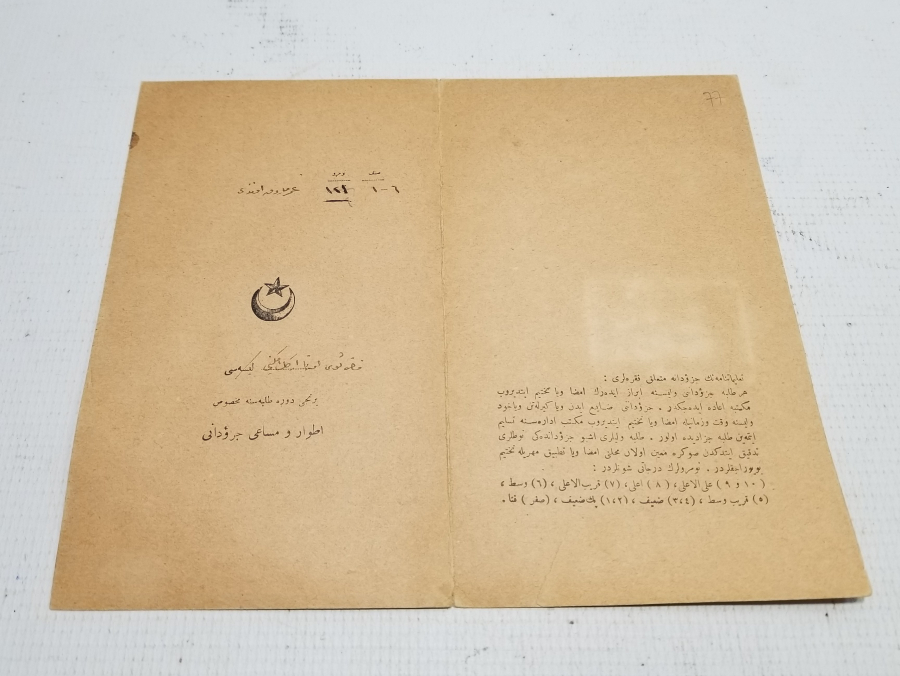 صنف نومرو
١-٦ ١٢٤ عمر فاروق افندی
لیسه‌سی
برنجی دوره طلبه‌سنه مخصوص
اطوار و مساعی جزؤدانی
77
تعلیماتنامه‌نك جزؤدانه متعلق فقره‌لری :
هر طلبه جزؤدانی ولیسنه ابراز ایده‌رك امضا ویا تختیم ایتدیروب
مكتبه اعاده ایده‌جكدر . جزؤدانی ضایع ایدن ویا كیرله‌تن ویاخود
ولیسنه وقت وزمانیله امضا ویا تختیم ایتدیروب مكتب اداره‌سنه تسلیم
ایتمه‌ین طلبه جزادیده اولور . طلبه ولیلری اشبو جزؤدانده‌كی نوطلری
تدقیق ایتدكدن صوكره معین اولان محلنی امضا ویا تطبیق مهریله تختیم
بویوراجقلردر . نومرولرك درجاتی شونلردر :
( ١٠ و ٩ ) علی الاعلی ، ( ٨ ) اعلی ، (٧) قریب الاعلی ، (٦) وسط ،
(٥) قریب وسط ، (٣،٤) ضعیف ، (١،٢) پك ضعیف ، (صفر) فنا .